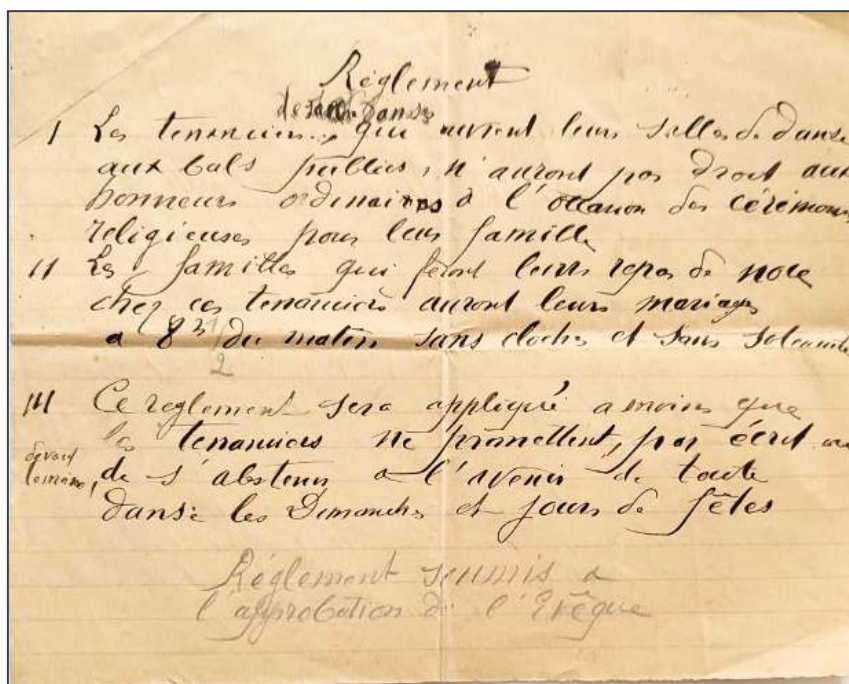 Règlement
de salle danse
I Les tenanciers, qui ouvrent leurs salles de danse
aux bals publics, n'auront pas droit aux
honneurs ordinaires à l'occasion des cérémonies
religieuses pour leur famille
II Les familles qui feront leurs repas de noce
chez ces tenanciers auront leurs mariages
a 8h 1/2 du matin sans cloches et sans solennité
III Ce règlement sera appliqué a moins que
les tenanciers ne promettent, par écrit ou
devant témoins, de s'abstenir a l'avenir de toute
danse les Dimanches et jours de fêtes
Règlement soumis a
l'approbation de l'Evêque